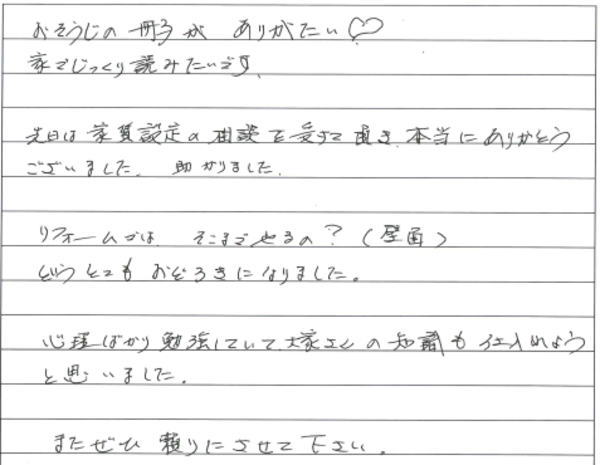 おそうじの冊子が ありがたい♡
家でじっくり読みたいです。
先日は家賃設定の相談を受けて頂き、本当にありがとう
ございました。 助かりました。
リフォームでは そこまでやるの？（壁面）
というとてもおどろきになりました。
心理ばかり勉強していて、大家さんの知識も仕入れよう
と思いました。
またぜひ 頼りにさせて下さい。